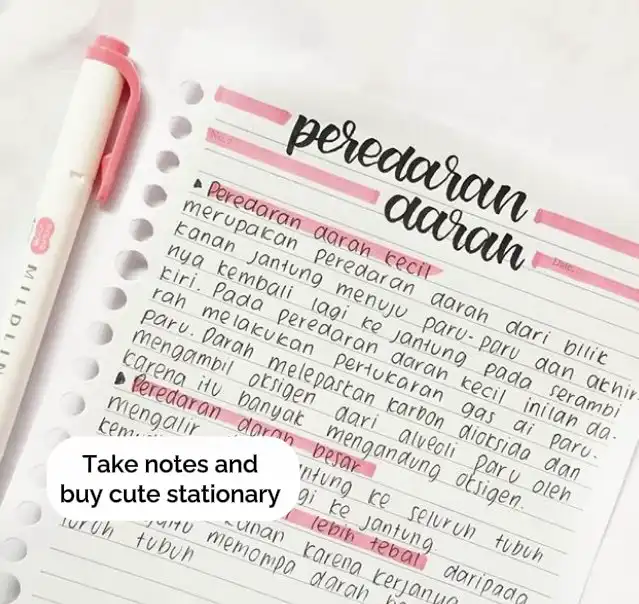 peredaran
darah
Date:
MILDLIN
▸ Peredaran darah kecil
merupakan peredaran darah dari bilik
kanan jantung menuju paru-paru dan akhir
nya kembali lagi ke jantung pada serambi
kiri. Pada peredaran darah kecil inilah da-
rah melakukan pertukaran gas di paru-
paru. Darah melepaskan karbon dioksida dan
mengambil oksigen dari alveoli paru oleh
karena itu banyak mengandung oksigen.
▸ Peredaran darah besar
mengalir jantung ke seluruh tubuh
gi ke jantung.
lebih tebal daripada
kanan karena kerjanya
memompa darah
tubuh
Take notes and
buy cute stationary